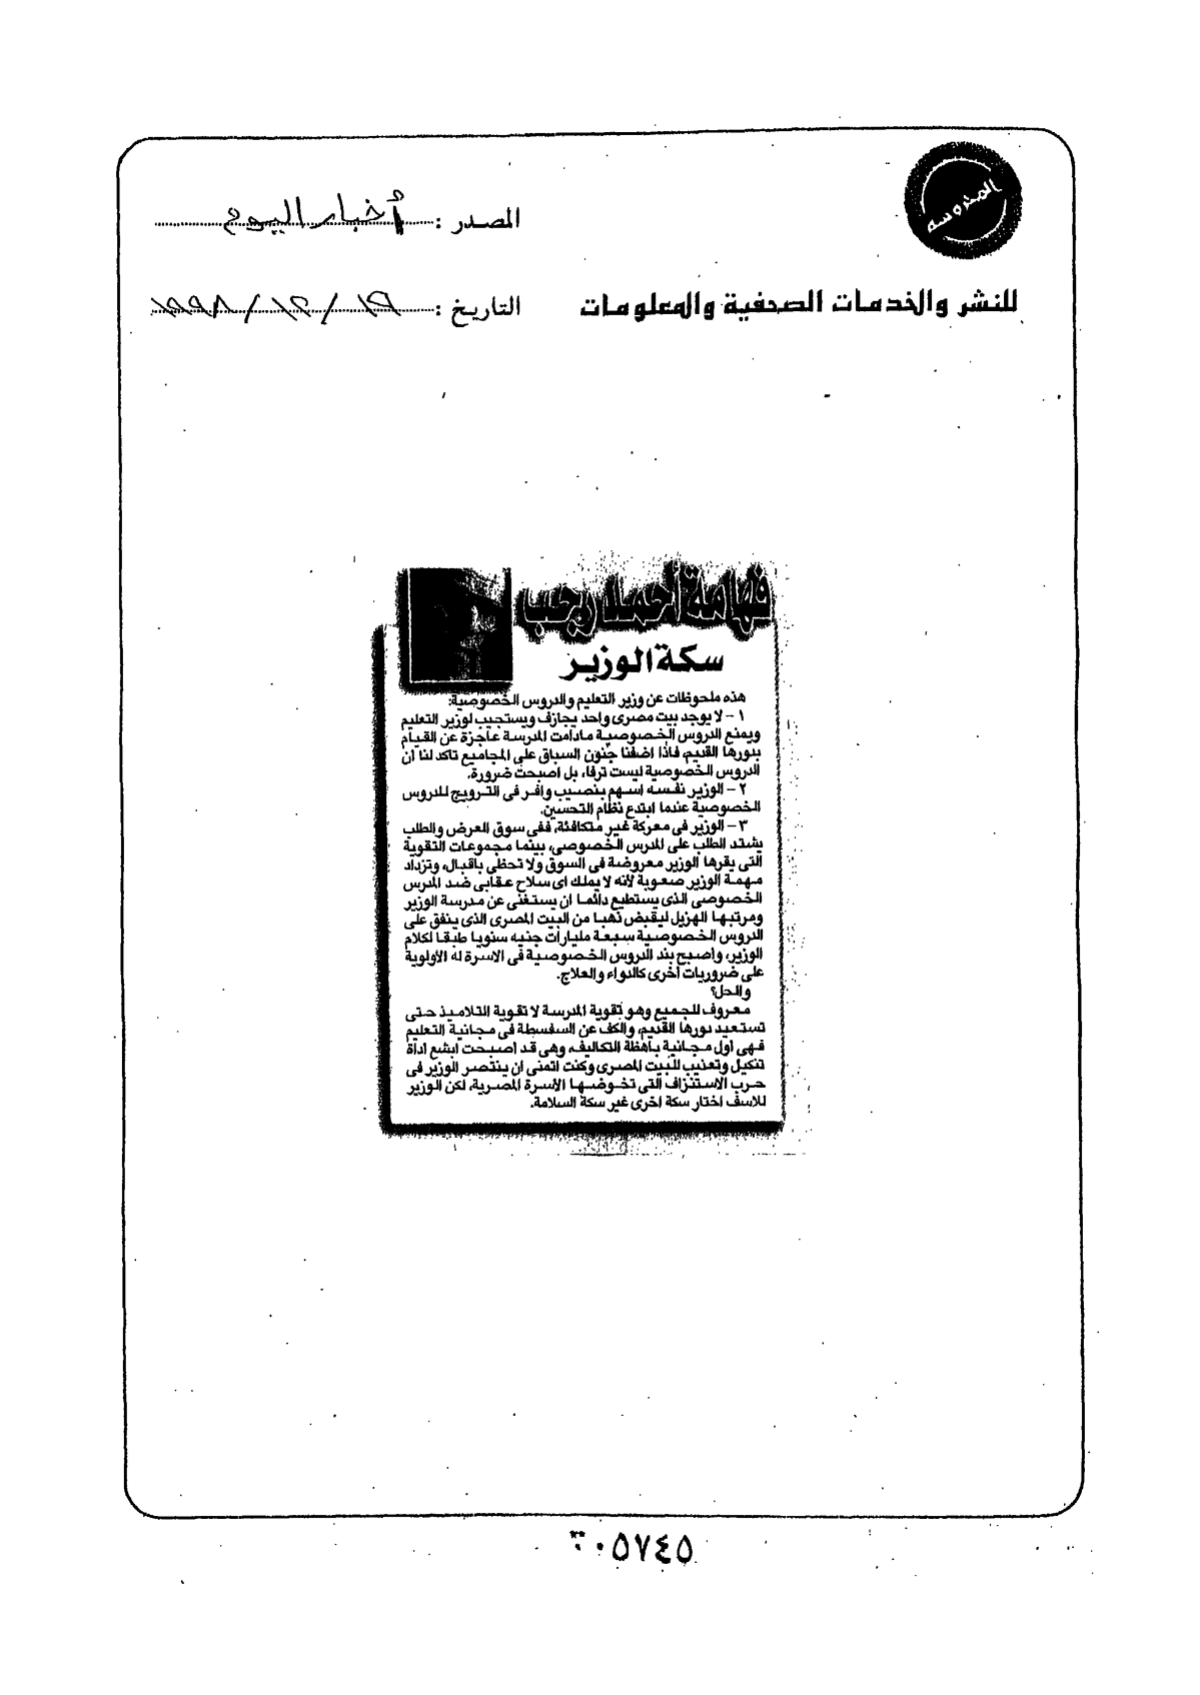 المحروسة
المصدر : أخبار اليوم
للنشر والخدمات الصحفية والمعلومات
التاريخ : ١٩ / ١٢ / ١٩٩٨
فهامة أحمد رجب
سكة الوزير
هذه ملحوظات عن وزير التعليم والدروس الخصوصية:
١ – لا يوجد بيت مصرى واحد يجازف ويستجيب لوزير التعليم
ويمنع الدروس الخصوصية مادامت المدرسة عاجزة عن القيام
بدورها القديم، فاذا اضفنا جنون السباق على المجاميع تاكد لنا ان
الدروس الخصوصية ليست ترفا، بل اصبحت ضرورة.
٢ – الوزير نفسه اسهم بنصيب وافر فى الترويج للدروس
الخصوصية عندما ابتدع نظام التحسين.
٣ – الوزير فى معركة غير متكافئة، ففى سوق العرض والطلب
يشتد الطلب على المدرس الخصوصى، بينما مجموعات التقوية
التى يقرها الوزير معروضة فى السوق ولا تحظى باقبال، وتزداد
مهمة الوزير صعوبة لأنه لا يملك اى سلاح عقابى ضد المدرس
الخصوصى الذى يستطيع دائما ان يستغنى عن مدرسة الوزير
ومرتبها الهزيل ليقبض ذهبا من البيت المصرى الذى ينفق على
الدروس الخصوصية سبعة مليارات جنيه سنويا طبقا لكلام
الوزير، واصبح بند الدروس الخصوصية فى الاسرة له الأولوية
على ضروريات أخرى كالدواء والعلاج.
والحل؟
معروف للجميع وهو تقوية المدرسة لا تقوية التلاميذ حتى
تستعيد دورها القديم، والكف عن السفسطة فى مجانية التعليم
فهى اول مجانية باهظة التكاليف، وهى قد اصبحت ابشع اداة
تنكيل وتعذيب للبيت المصرى وكنت اتمنى ان ينتصر الوزير فى
حرب الاستنزاف التى تخوضها الأسرة المصرية، لكن الوزير
للاسف اختار سكة اخرى غير سكة السلامة.
٠٥٧٤٥